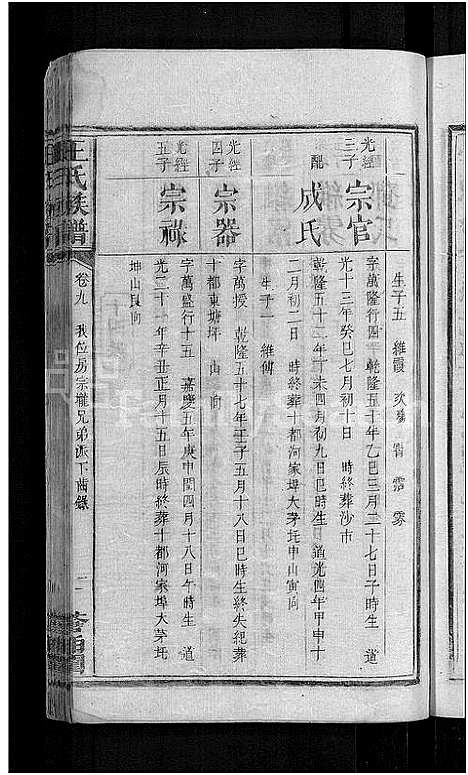 生子五 維霞 次
光經三子
宗官
字萬隆行四 乾隆五十年乙巳三月二十七日子時生 道
光十三年癸巳七月初十日 時終葬沙市
配
成氏
乾隆五十二年丁未四月初九日巳時生 道光四年甲申十
二月初二日 時終葬十都河家埠大茅坵申山寅向
生子一 維傅
光經四子
宗器
字萬授 乾隆五十七年壬子五月十八日巳時生終失紀葬
十都東塘坪 山 向
光經五子
宗祿
字萬盛行十五 嘉慶五年庚申閏四月十八日午時生 道
光二十一年辛丑正月十五日辰時終葬十都河家埠大茅坵
坤山艮向
王氏族譜
卷九
房宗瓏兄弟派下齒錄